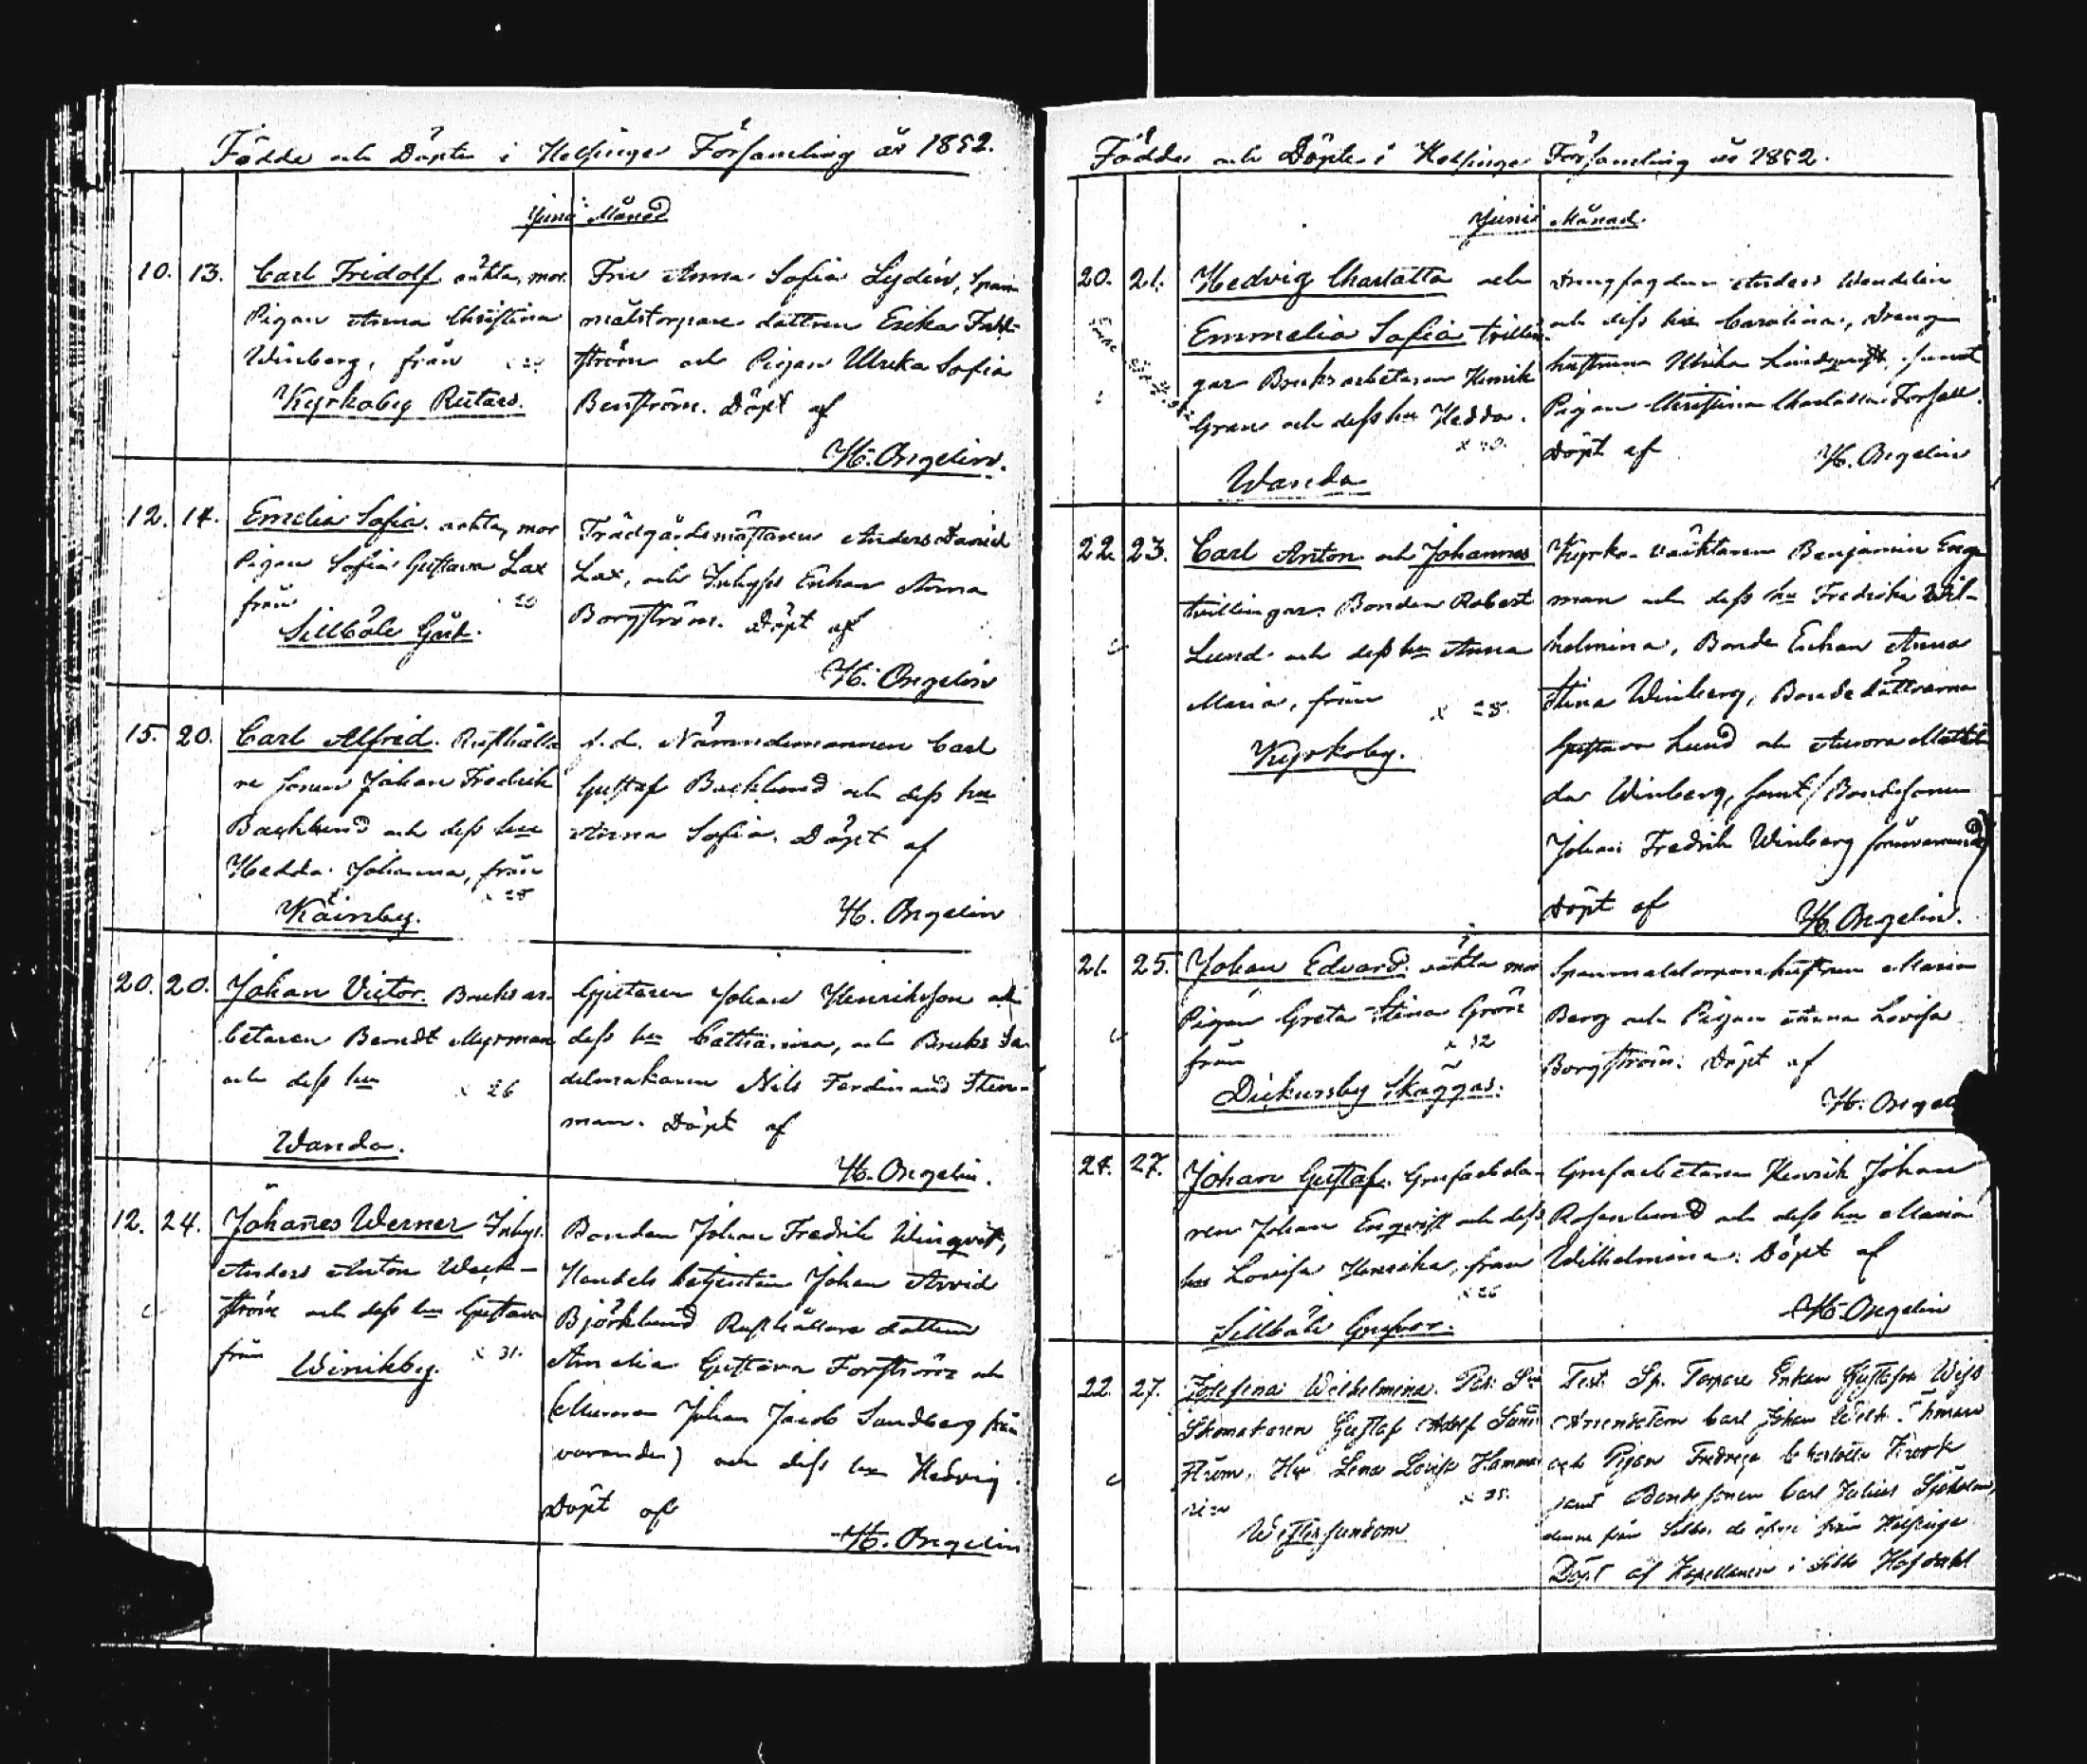 Födde och Döpte i Helsinge Församling år 1852.
Junii Månad
10. 13. Carl Fridolf. oäkta, mor
Pigan Anna Christina
Winberg, från
Kyrkoby Rutars.
Fru Anna Sofia Lydén, Span-
målstorpare dottren Erika
ström och Pigan Ulrika Sofia
Benström. Döpt af
H. Ongelin.
12. 14. Emelia Sofia. oäkta, mor
Pigan Sofia Gustava Lax
från
Sillböle Gård.
Trädgårdsmästaren Anders David
Lax, och Inhyses Enkan Anna
Borgström. Döpt af
H. Ongelin
15. 20. Carl Alfred. Rusthålla
re sonen Johan Fredrik
Backlund och dess hu
Hedda Johanna, från
x 25
f.d. Nämndemannen Carl
Gustaf Backlund och dess hu
Anna Sofia. Döpt af
H. Ongelin
20. 20. Johan Victor. Bruksar-
betaren Berndt Myrman
och dess hu x 26
Wanda.
Gjutaren Johan Henriksson och
dess hu Catharina, och Bruks Sa-
delmakaren Nils Ferdinand Sten-
man. Döpt af
H. Ongelin.
12. 24. Johañes Werner Inhys.
Anders Anton Weck-
ström och dess hu Gustava
från Winikby. x 31.
Bonden Johan Fredrik Winqvist,
Handels betjenten Johan Arvid
Björklund Rusthållare dottren
Amelia Gustava Forsström och
Johan Jacob Sandberg från
varande) och dess hu Hedvig.
Döpt af
H. Ongelin
Födde och Döpte i Helsinge Församling år 1852.
Junii Månad.
20. 21. Hedvig Charlotta och
Emmelia Sofia tvillin-
gar Bruksarbetaren Henrik
Gran och dess hu Hedda.
Wanda
Anders Wendelin
och dess hu Carolina, Dräng
hustrun Ulrika Lindqvist, samt
Pigan Christina Charlotta Forsell.
Döpt af H. Ongelin
22. 23. Carl Anton och Johannes
tvillingar. Bonden Robert
Lund och dess hu Anna
Maria, från x 28.
Kyrkoby.
Kyrko-väktaren Benjamin Eng-
man och dess hu Fredrika Wil-
helmina, Bonde Enkan Anna
Stina Winberg, Bondedöttrarna
Gustava Lund och Aurora Mathil-
da Winberg, samt (Bondesonen
Johan Fredrik Winberg frånvarande)
Döpt af H. Ongelin.
21. 25. Johan Edvard. oäkta mor
Pigan Greta Stina Grön
från x 32
Dickursby Skäggas.
Spanmålstorparehustrun Maria
Berg och Pigan Anna Lovisa
Borgström. Döpt af
H. Ongel
24. 27. Johan Gustaf. Grufarbeta-
ren Johan Enqvist och dess
hu Lovisa Henrika, från
x 26
Sillböle Grufvor.
Grufarbetaren Henrik Johan
Rosenlund och dess hu Maria
Wilhelmina. Döpt af
H. Ongelin
22. 27. Josefina Wilhelmina.
Skomakaren Gustaf Adolf Sand
ström. Hu Lena Lovisa
Westersundom
Test. Sp. Torpare Enkan Gustafva
Arrendatorn Carl Johan
och Pigan Fredrica Charlotta
samt Bondesonen Carl Julius Sjöholm,
denne från Sibbo de öfvre från Helsinge
Döpt af Kapellanen i Sibbo Hofdahl